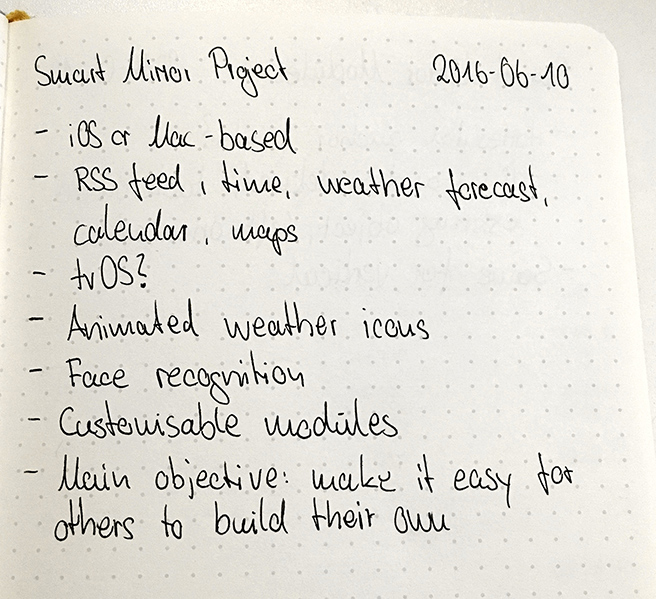 Smart Mirror Project 2016-06-10
- iOS or Mac-based
- RSS feed, time, weather forecast,
calendar, maps
- tvOS?
- Animated weather icons
- Face recognition
- Customisable modules
- Main objective: make it easy for
others to build their own